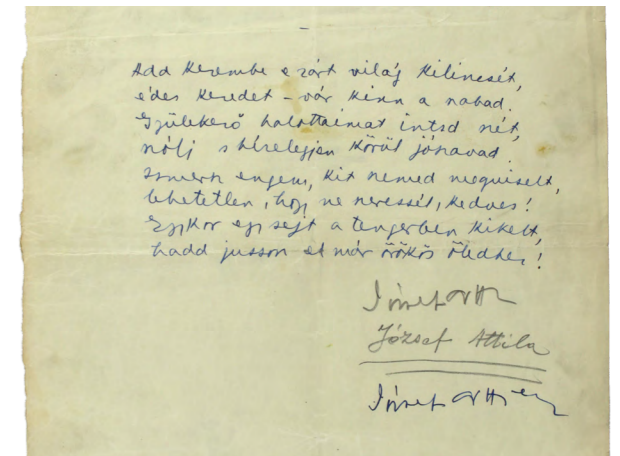 Add kezembe e zárt világ kilincsét,
édes kezedet – vár kinn a szabad.
Gyülekező halottaimat intsd szét,
szólj s hízelegjen körül jószavad.
Ismersz engem, kit nemed megviselt,
lehetetlen, hogy ne szeressél, kedves!
Egykor egy sejt a tengerben kikelt,
hadd jusson el már örökös öledhez!
József Attila
József Attila
József Attila